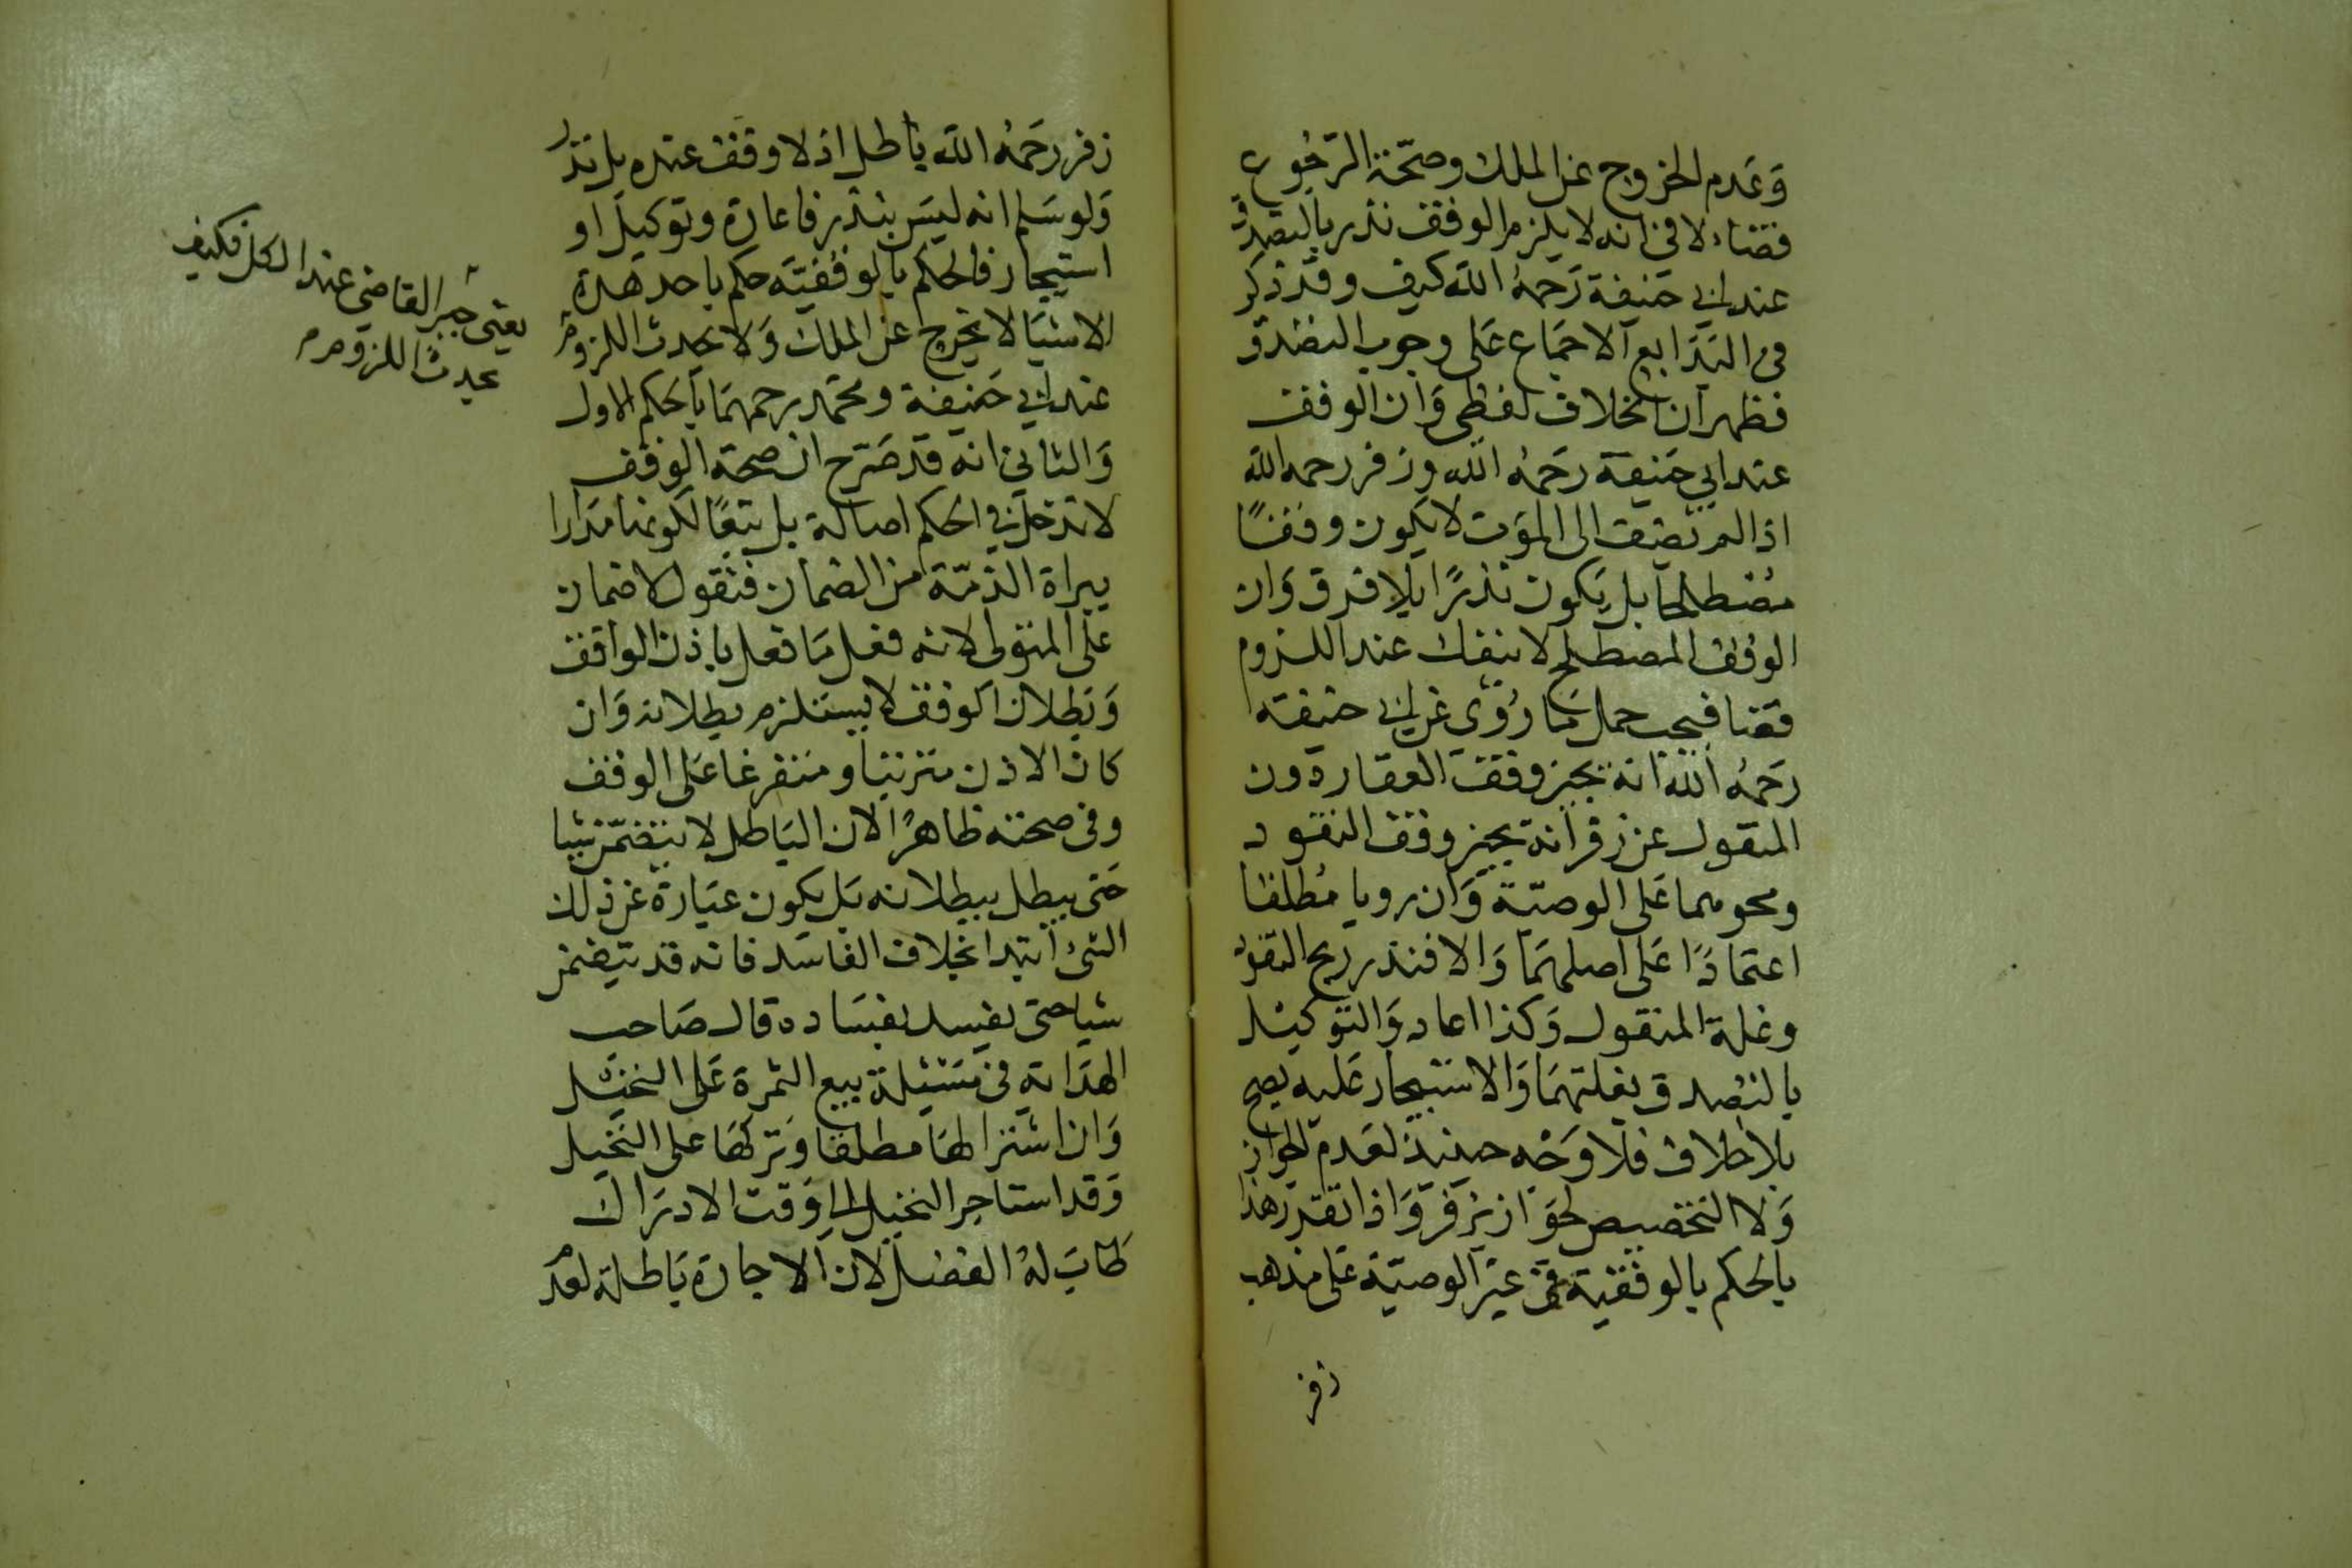 وَعَدم الخروج عن الملك وصحّة الرّجُوع
قضاء لا في انه لا يلزم الوقف نذر بالتصدق
عند ابي حَنيفة رَحمهُ الله كيف وقد ذكر
في البَدَايع الاجماع عَلى وجوب التصدق
فظهر ان الخلاف لفظى وَان الوقف
عند ابي حَنيفة رَحمهُ الله وزفر رحمه الله
اذا لم يضف الى الموَت لا يكون وقفًا
مُصْطلحا بل يكون نذرًا بلا فرق وَان
الوقف المصطلح لا ينفك عند اللزوم
قضا فيجب حمل مَا رُوى عن ابي حنيفة
رَحمهُ الله انه يجيز وقف العقار دون
المنقول عن زفر انه يجيز وقف النقود
ونحوهما عَلى الوصيّة وَان رويا مُطلقا
اعتمادًا عَلى اصلهمَا وَالا فنذر ربح النقود
وغلة المنقول وَكذا اعاده وَالتوكيل
بالتصدق بغلتهمَا وَالاستيجار عَليه يصح
بلا خلاف فلا وَجْه حينيذ لعَدم الجواز
وَلا التخصيص لجوَاز بزفر وَاذا تقدر هذا
بالحكم بالوقفية في غير الوصيّة عَلى مذهب
زفر
زفر رحَمهُ الله باطل اذ لا وقف عنده بل نذر
وَلو سَلم انه ليسَ بنذر فاعارة وتوكيل او
استيجار فالحكم بالوقفيّة حكم باحد هذه
الاشيَا لا يخرج عن الملك وَلا يحدث اللزوم
عند ابي حَنيفة ومحمّد رحمهمَا بالحكم الاول
وَالثاني انه قد صَرّح ان صحة الوقف
لا تدخل في الحكم اصالة بل تبعًا لكونها مَدارا
ببراة الذمّة من الضمان فنقول لا ضمان
على المتولى لانه فعل مَا فعل باذن الواقف
وَبطلان الوقف لا يستلزم بطلانه وَان
كان الاذن مترتبا ومتفرعا عَلى الوقف
وفى صحته ظاهرًا لان البَاطل لا يتضمّن شيا
حَتى يبطل ببطلانه بَل يكون عبَارة عَن ذلك
الشئ ابتدا بخلاف الفاسَد فانه قد يتضمن
شيا حتى يفسد بفسَاده قال صَاحب
الهدَاية في مَسْئلة بيع الثمرة عَلى النخيل
وَان اشتراها مطلقا وَتركهَا على النَخيل
وَقد استاجر النخيل الى وَقت الادرَاك
طابَ لهُ الفضل لان الاجارة بَاطلة لعدم
يعنى جبر القاضي عند الكل فكيف
يحدث اللزوم م